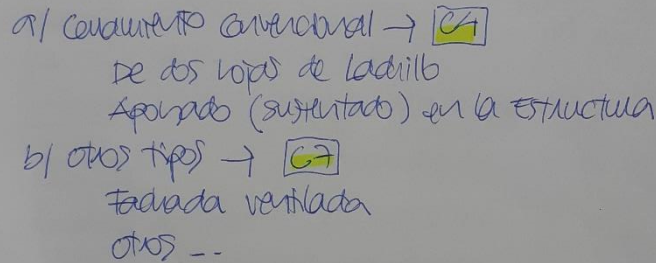 a/ Cerramiento convencional → C4
De dos hojas de ladrillo
Apoyado (sustentado) en la Estructura
b/ otros tipos → C7
Fachada ventilada
otros --